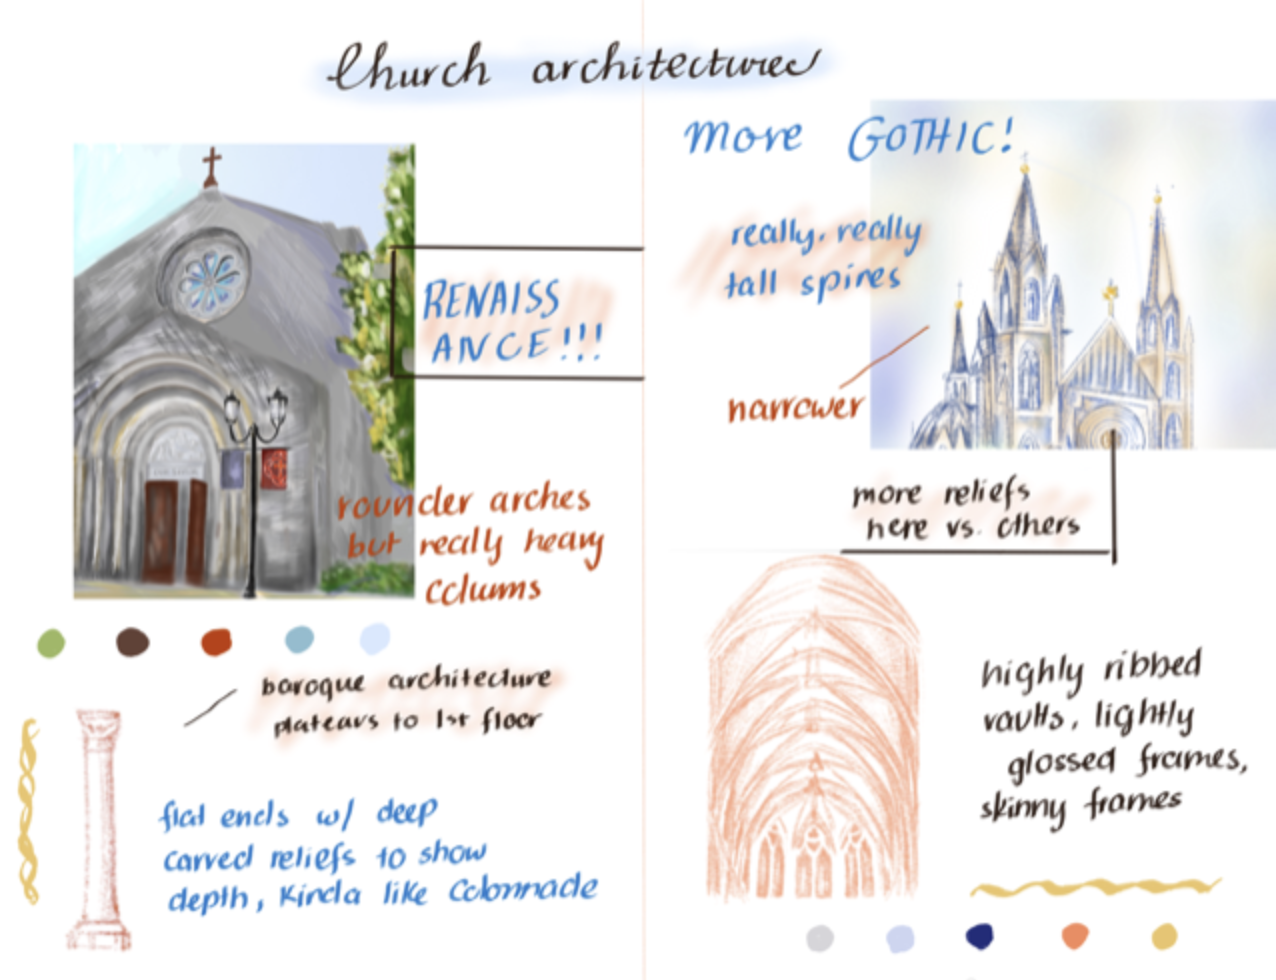 Church architecture
RENAISS
ANCE!!!
rounder arches
but really heavy
colums
baroque architecture
plateaus to 1st floor
flat ends w/ deep
carved reliefs to show
depth, kinda like Colonnade
more GOTHIC!
really, really
tall spires
narrower
more reliefs
here vs. others
highly ribbed
vaults, lightly
glossed frames,
skinny frames